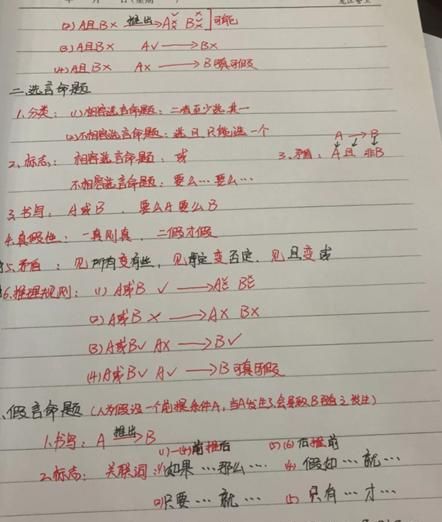 (2) A且B× 推出→ A× B× 可能
(3) A且B× A√ → B×
(4) A且B× A× → B可真可假
二、选言命题
1.分类：(1)相容选言命题：二者至少选其一
(2)不相容选言命题：选且只能选一个
2.标志：相容选言命题：或
不相容选言命题：要么…要么…
3.矛盾：A→B
A且非B
3.书写：A或B、要么A要么B
4.真假性：一真则真，二假才假
5.矛盾：见所有变有些，见肯定变否定，见且变或
6.推理规则：(1) A或B √ →
(2) A或B × → A× B×
(3) A或B√ A× → B√
(4) A或B√ A√ → B可真可假
、假言命题（人为假设一个前提条件A，当A发生了会导致B随之发生）
1.书写：A 推出→ B
(1)-(4)前推后 (5)(6)后推前
2.标志：关联词：(1)如果…那么… (4)假如…就…
(2)只要…就… (5)只有…才…